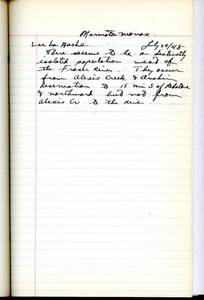 Marmota monax
Lac la Hache July 20/48
There seems to be a distinctly
isolated population west of
the Fraser River. They occur
from Alexis Creek & Anahim
Reservation to 15 mi S of
& northward but not from
Alexis Cr to the